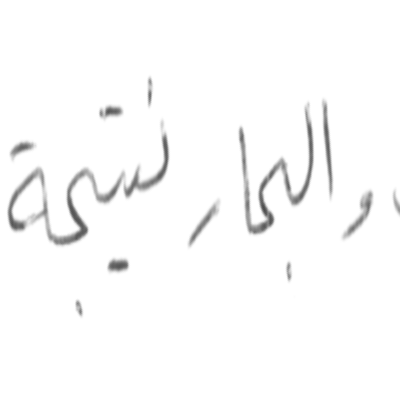 والبحار نتيجة